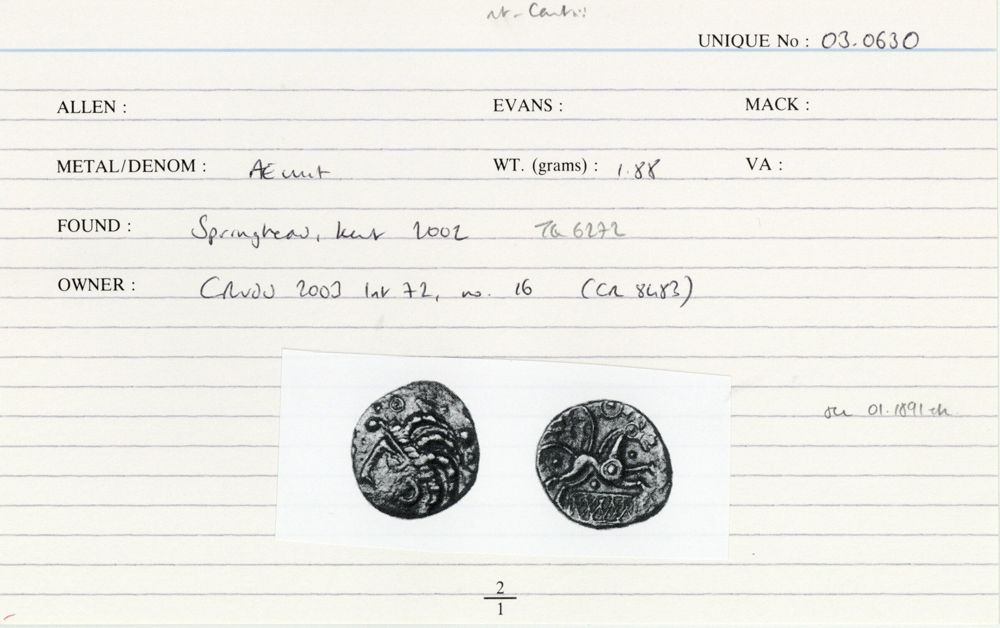 UNIQUE No : 03.0630
ALLEN : EVANS : MACK :
METAL/DENOM : AE unit WT. (grams) : 1.88 VA :
FOUND : Springhead, Kent 2002 TQ 6272
OWNER : CNR 2003 72, no. 16 (CR 8483)
01.1891
2
1